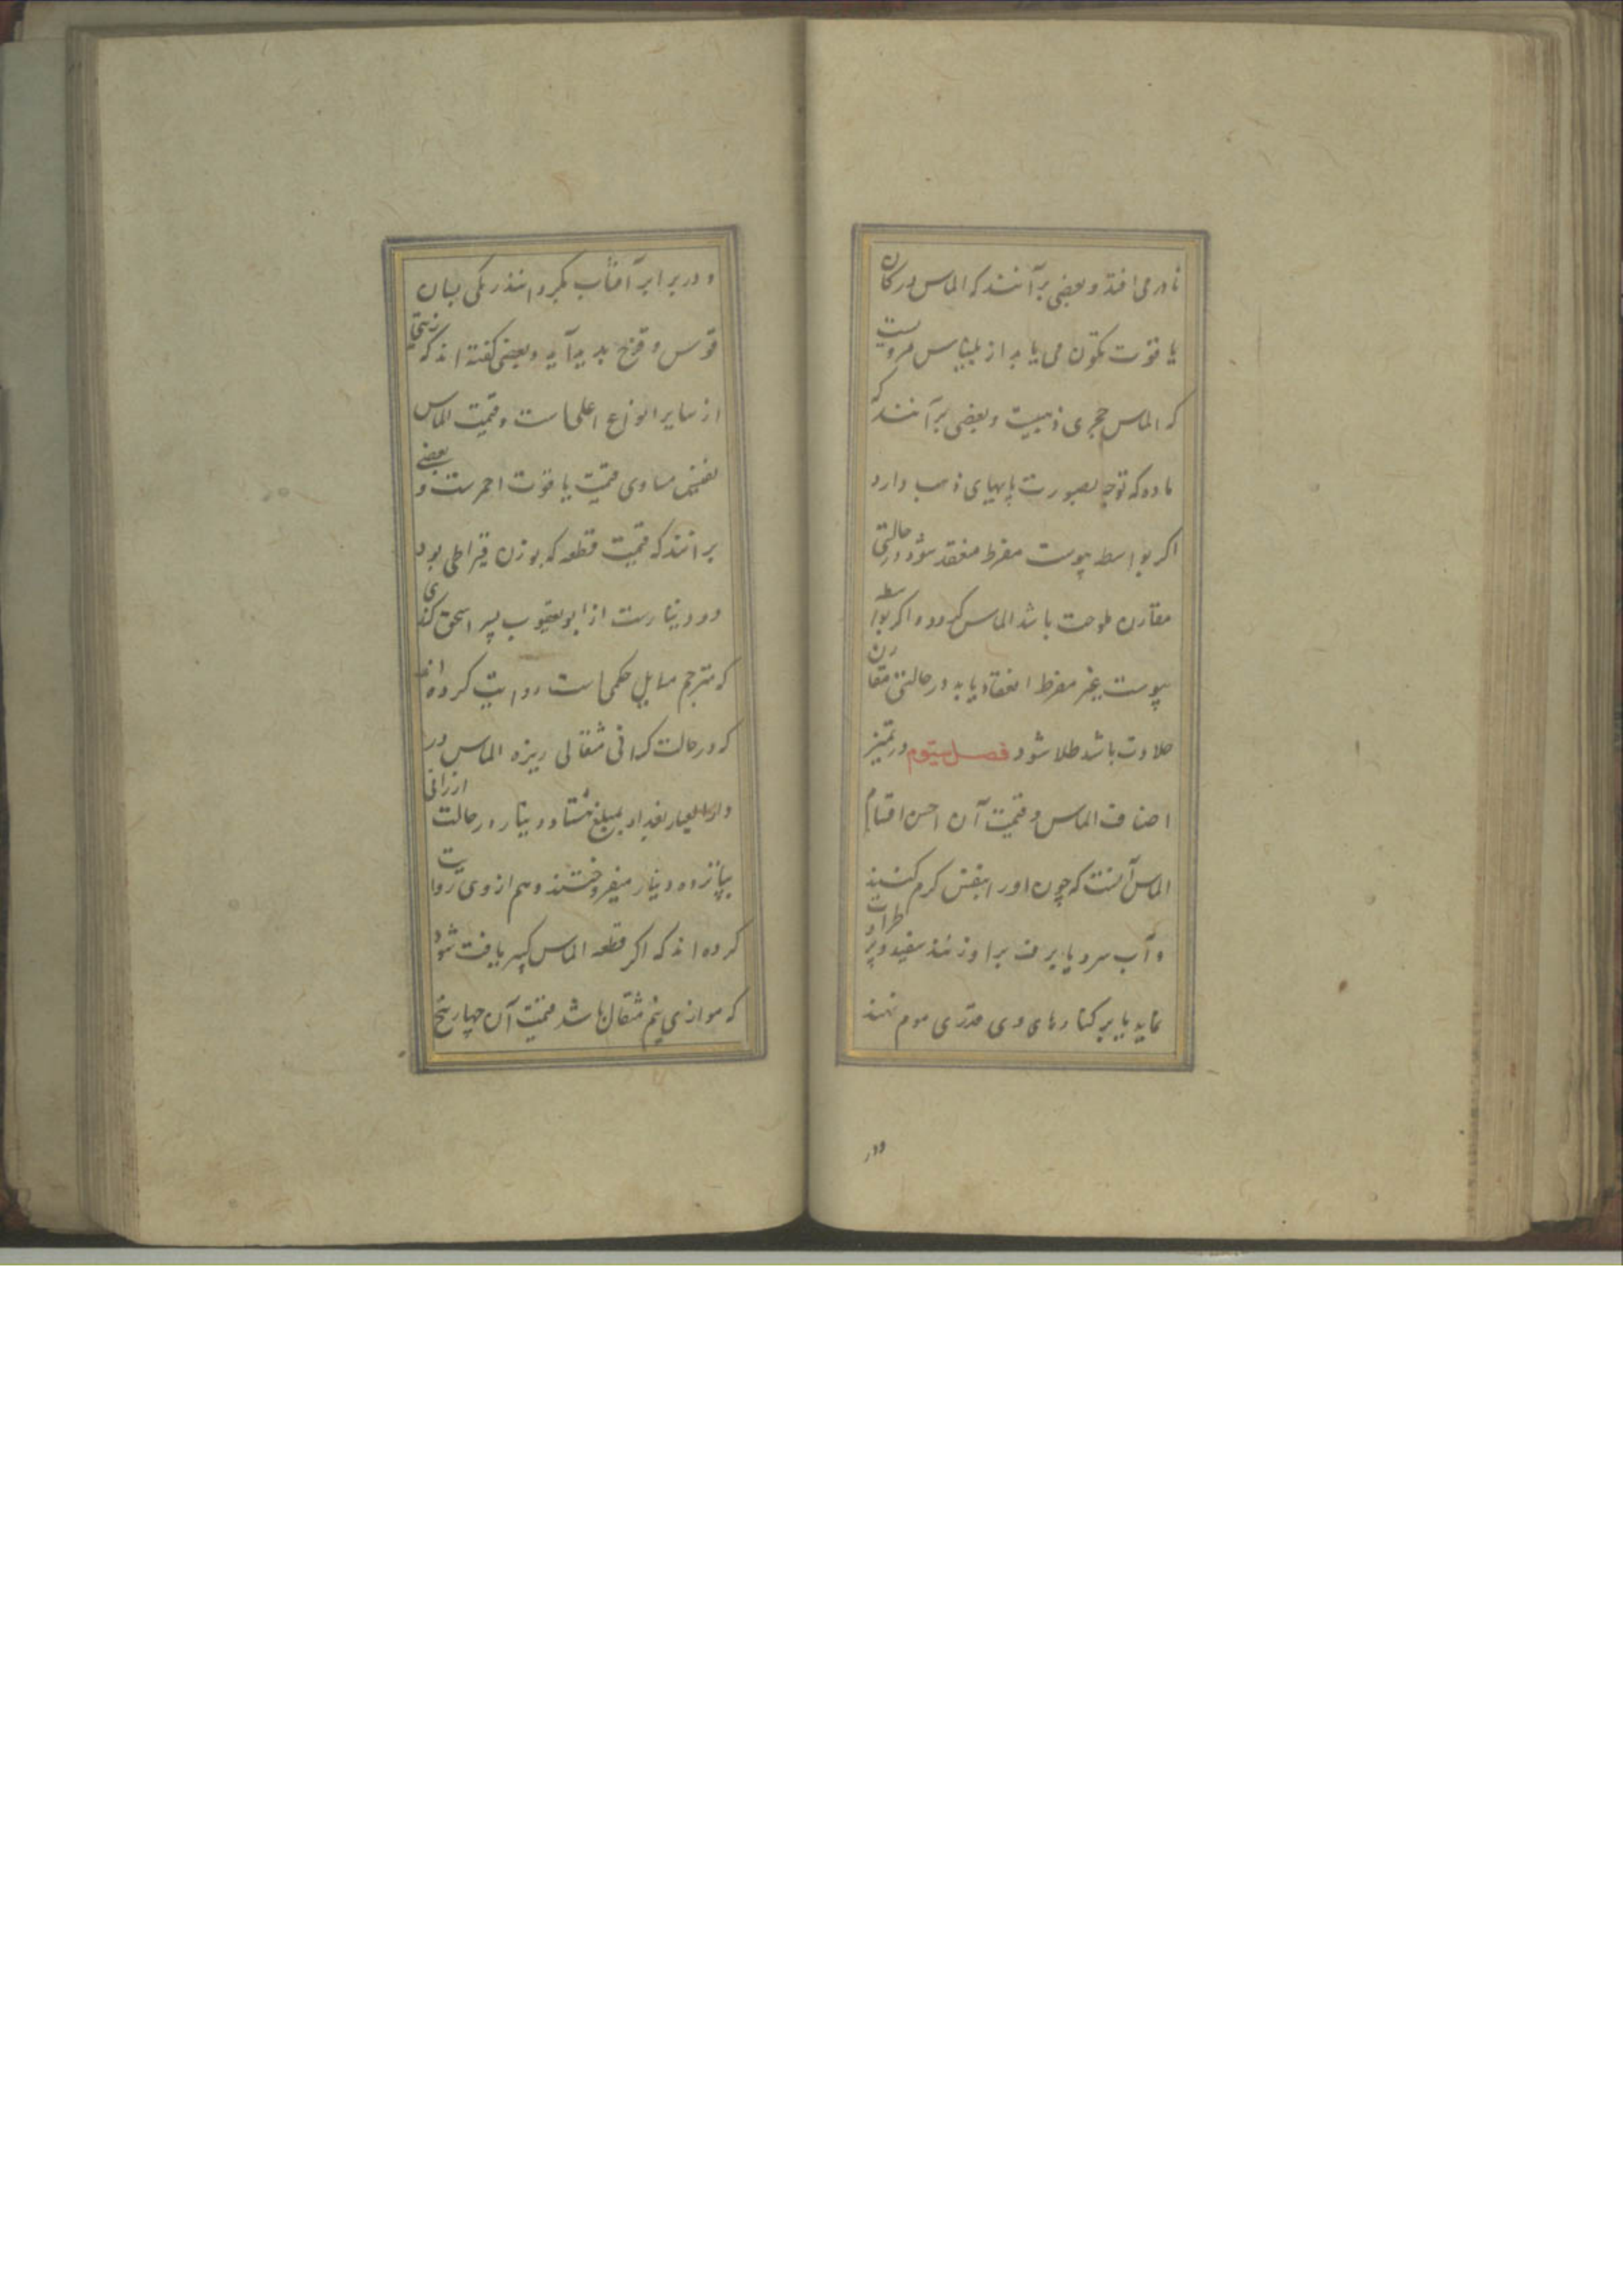 نادر می افتد و بعضی برآنند که الماس در کان
یاقوت تکون می یابد از بلیناس مرویست
که الماس حجری ذهبیست و بعضی برآنند که
ماده که توجه بصورت پابهای ذهب دارد
اکر بواسطه یبوست مفرط منعقد شود در حالتی
مقارن ملوحت باشد الماس کردد و اکر بواسطه
یبوست غیر مفرط انعقاد یابد در حالتی مقارن
حلاوت باشد طلا شود فصل سیوم در تمیز
اصناف الماس و قیمت آن احسن اقسام
الماس آنست که چون او را بنفس کرم کنند
و آب سرد یا برف بر او زنند سفید و پر طراوت
نماید یا بر کنارهای وی قدری موم نهند
ودر
و در برابر آفتاب بکردانند رنکی بسان
قوس و قزح پدید آید و بعضی کفته اند که زیتی
از سایر انواع اعلی است و قیمت الماس
نفیس مساوی قیمت یاقوت احمرست و بعضی
برانند که قیمت قطعه که بوزن قیراطی بود
دو دینارست از ابو یعقوب پسر اسحق کندی
که مترجم مسایل حکمی است روایت کرده اند
که در حالت کرانی مثقالی ریزه الماس در
بغداد بمبلغ هشتاد دینار و در حالت ارزانی
بپانزده دینار میفروختند و هم از وی روایت
کرده اند که اکر قطعه الماس کبیر یافت شود
که موازی نیم مثقال باشد قیمت آن چهار پنج